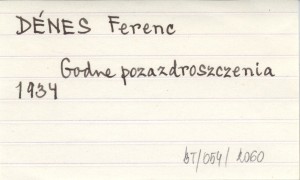 DÉNES Ferenc
Godne pozazdroszczenia
1934
BT/054/1060